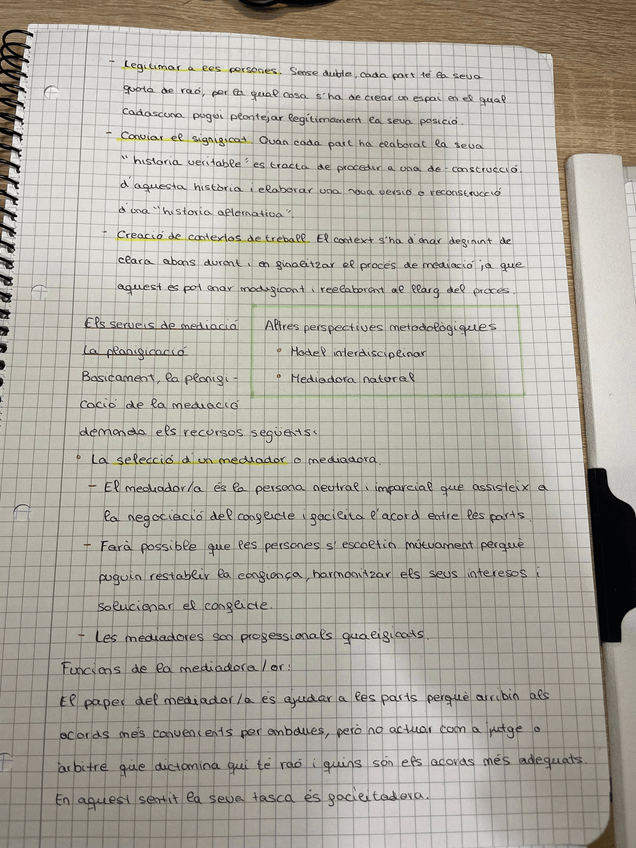 - Legitimar a les persones. Sense dubte, cada part té la seva
quota de raó, per la qual cosa s'ha de crear un espai en el qual
cadascuna pugui plantejar legítimament la seva posició.
- Canviar el significat. Quan cada part ha elaborat la seva
"historia veritable" es tracta de procedir a una de-construcció
d'aquesta història i elaborar una nova versió o reconstrucció
d'una "historia alternativa".
- Creació de contextos de treball. El context s'ha d'anar definint de
clara abans durant i en finalitzar el procés de mediació ja que
aquest es pot anar modificant i reelaborant al llarg del procés.
Els serveis de mediació
La planificació
Basicament, la planifi-
cació de la mediació
Altres perspectives metodològiques
• Model interdisciplinar
• Mediadora natural
demanda els recursos següents:
• La selecció d'un mediador o mediadora.
- El mediador/a és la persona neutral i imparcial que assisteix a
la negociació del conflicte i facilita l'acord entre les parts.
- Farà possible que les persones s'escoltin mútuament perquè
puguin restablir la confiança, harmonitzar els seus interesos i
solucionar el conflicte.
- Les mediadores son professionals qualificats.
Funcions de la mediadora/or:
El paper del mediador/a és ajudar a les parts perquè arribin als
acords més convenients per ambdues, però no actuar com a jutge o
arbitre que dictamina qui té raó i quins són els acords més adequats.
En aquest sentit la seva tasca és facilitadora.